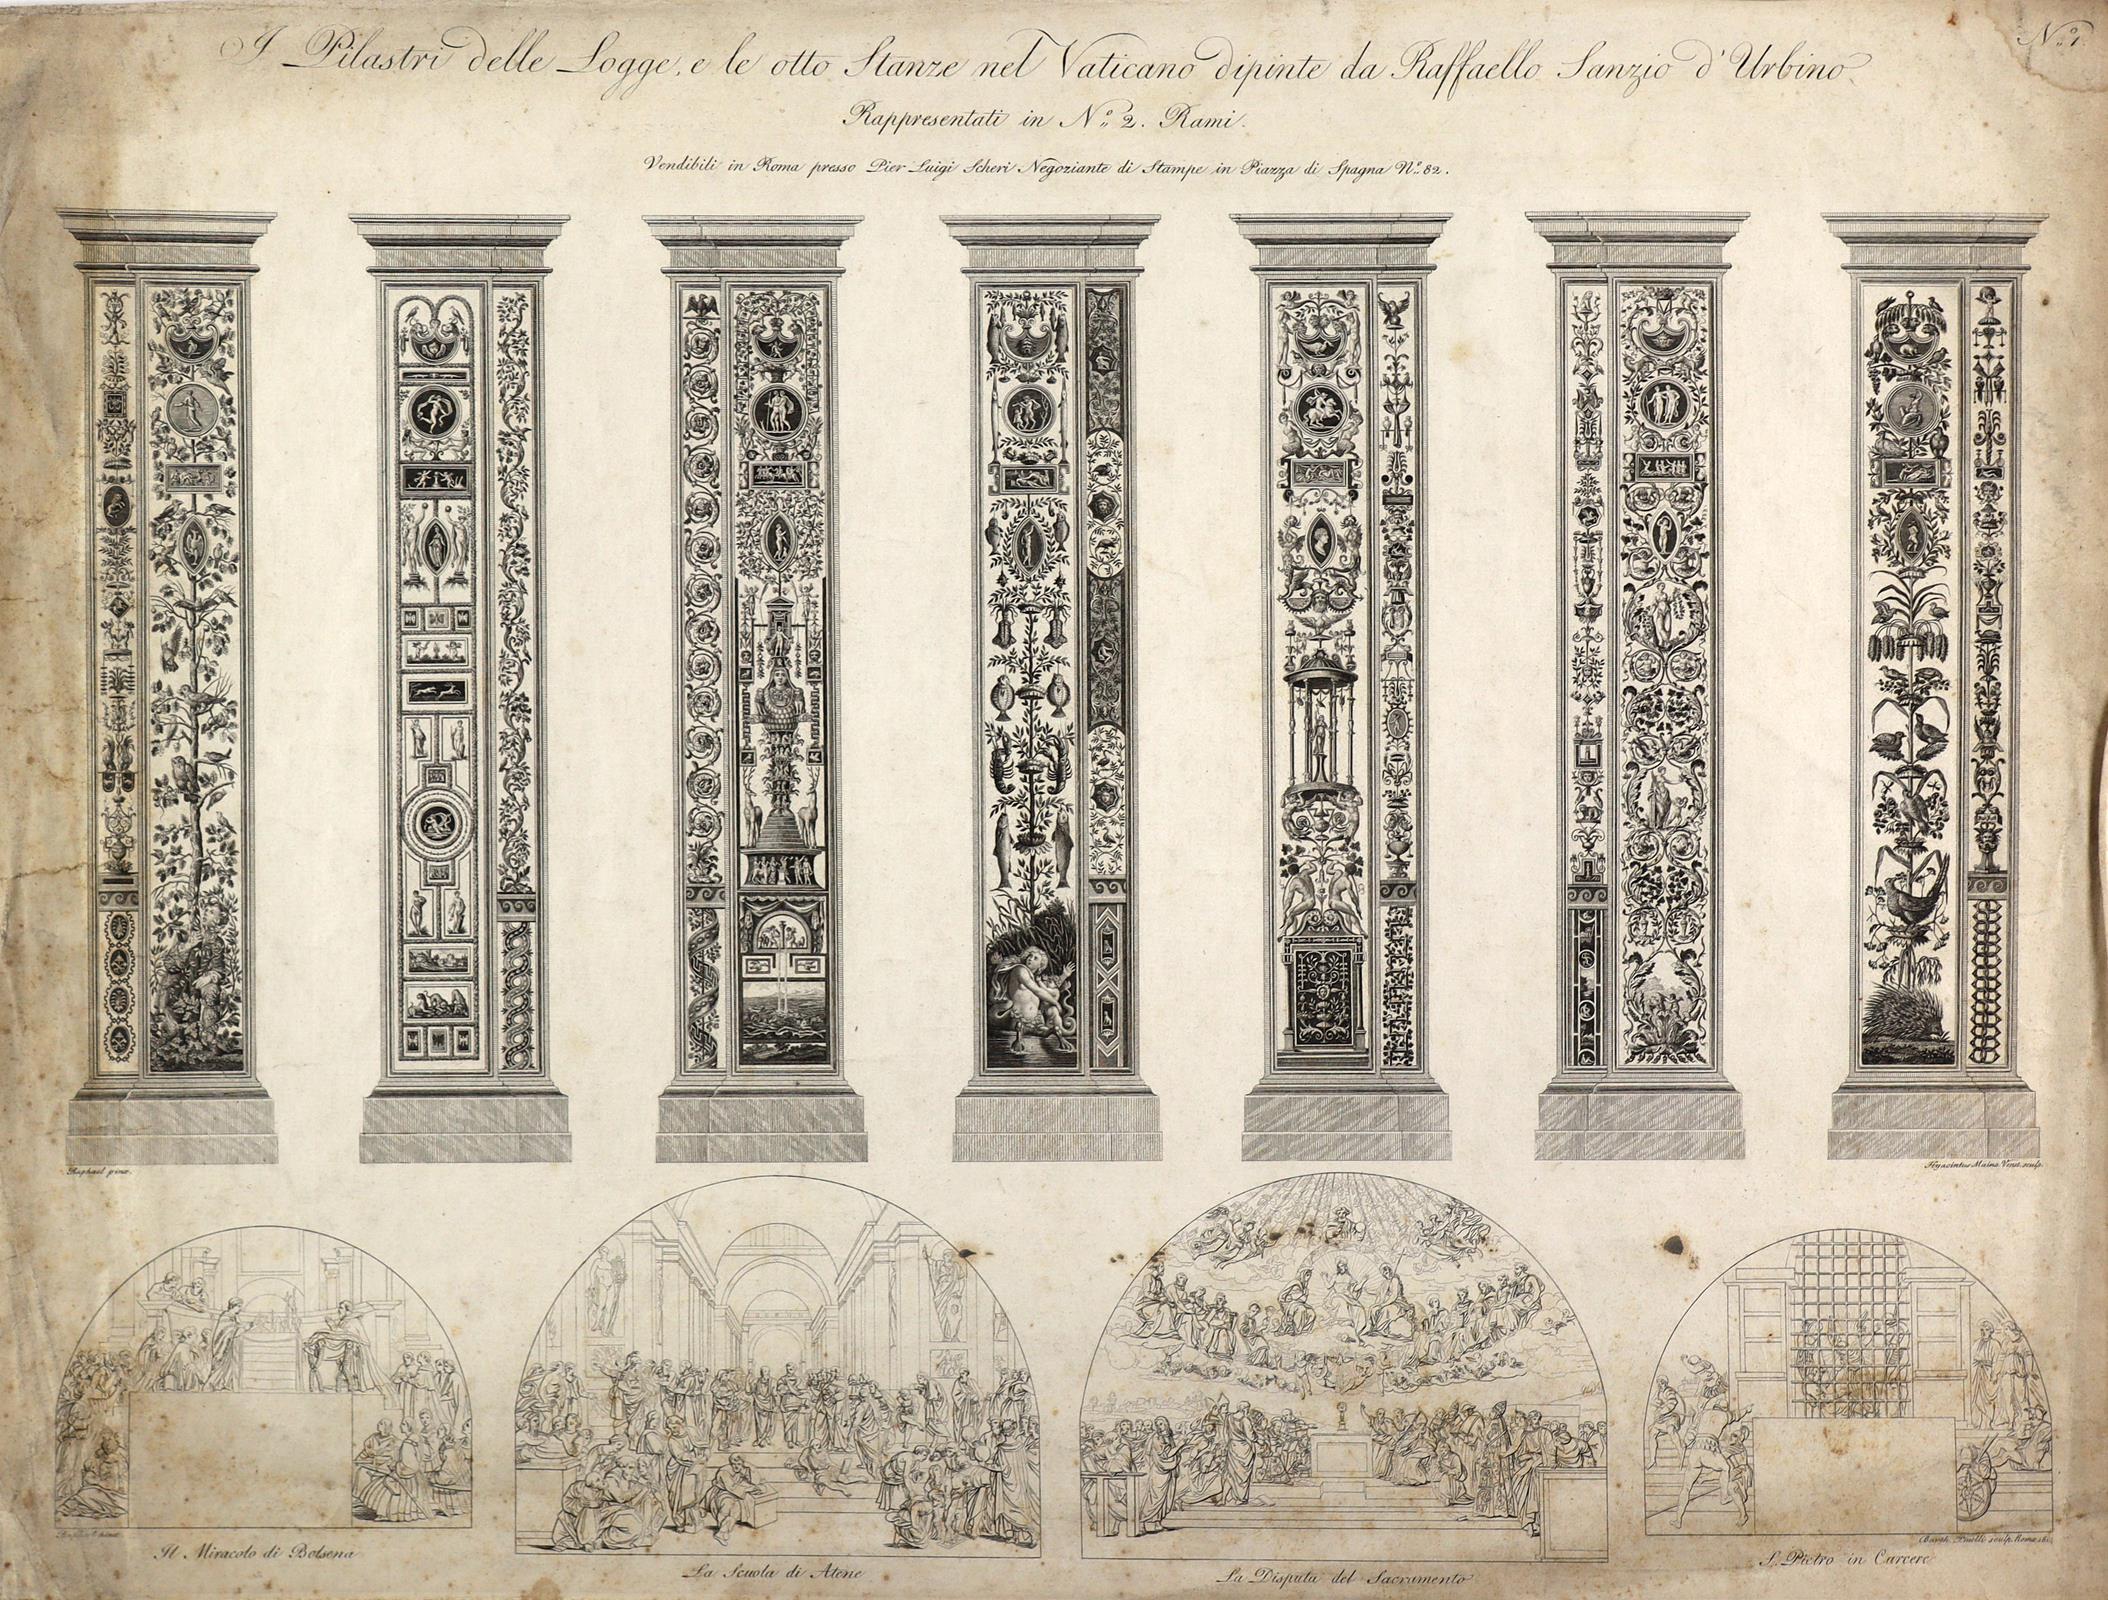 N.º 1.
I Pilastri delle Logge, e le otto Stanze nel Vaticano dipinte da Raffaello Sanzio d'Urbino
Rappresentati in N.º 2. Rami.
Vendibili in Roma presso Pier Luigi Scheri Negoziante di Stampe in Piazza di Spagna N.º 82.
Raphael pinx.
Hyacintus Maina Venet. sculp.
Il Miracolo di Bolsena
La Scuola di Atene
La Disputa del Sacramento
Barth. Pinelli sculp. Roma
S. Pietro in Carcere